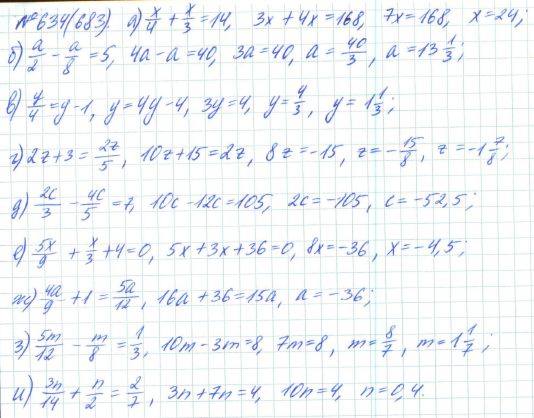 №634(683). а) x/4 + x/3 = 14, 3x + 4x = 168, 7x = 168, x = 24;
б) a/2 - a/8 = 5, 4a - a = 40, 3a = 40, a = 40/3, a = 13 1/3;
в) y/4 = y - 1, y = 4y - 4, 3y = 4, y = 4/3, y = 1 1/3;
г) 2z + 3 = 2z/5, 10z + 15 = 2z, 8z = -15, z = -15/8, z = -1 7/8;
д) 2c/3 - 4c/5 = 7, 10c - 12c = 105, 2c = -105, c = -52,5;
е) 5x/9 + x/3 + 4 = 0, 5x + 3x + 36 = 0, 8x = -36, x = -4,5;
ж) 4a/9 + 1 = 5a/12, 16a + 36 = 15a, a = -36;
з) 5m/12 - m/8 = 1/3, 10m - 3m = 8, 7m = 8, m = 8/7, m = 1 1/7;
и) 3n/14 + n/2 = 2/7, 3n + 7n = 4, 10n = 4, n = 0,4.